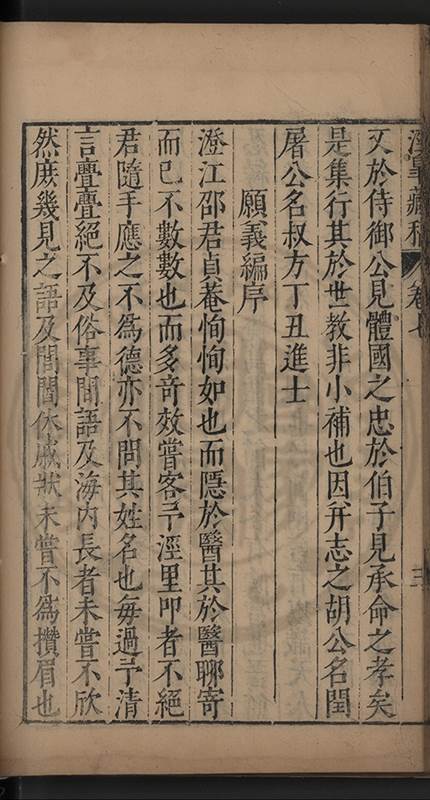 涇臯藏稿 卷七 三
又於侍御公見體國之忠於伯子見承命之孝矣
是集行其於世教非小補也因并志之胡公名閏
屠公名叔方丁丑進士
願義編序
澄江邵君貞菴恂恂如也而隱於醫其於醫聊寄
而已不數數也而多奇效嘗客予涇里叩者不絕
君隨手應之不爲德亦不問其姓名也每過予清
言亹亹絕不及俗事間語及海內長者未嘗不欣
然庶幾見之語及閭閻休戚狀未嘗不爲攢眉也